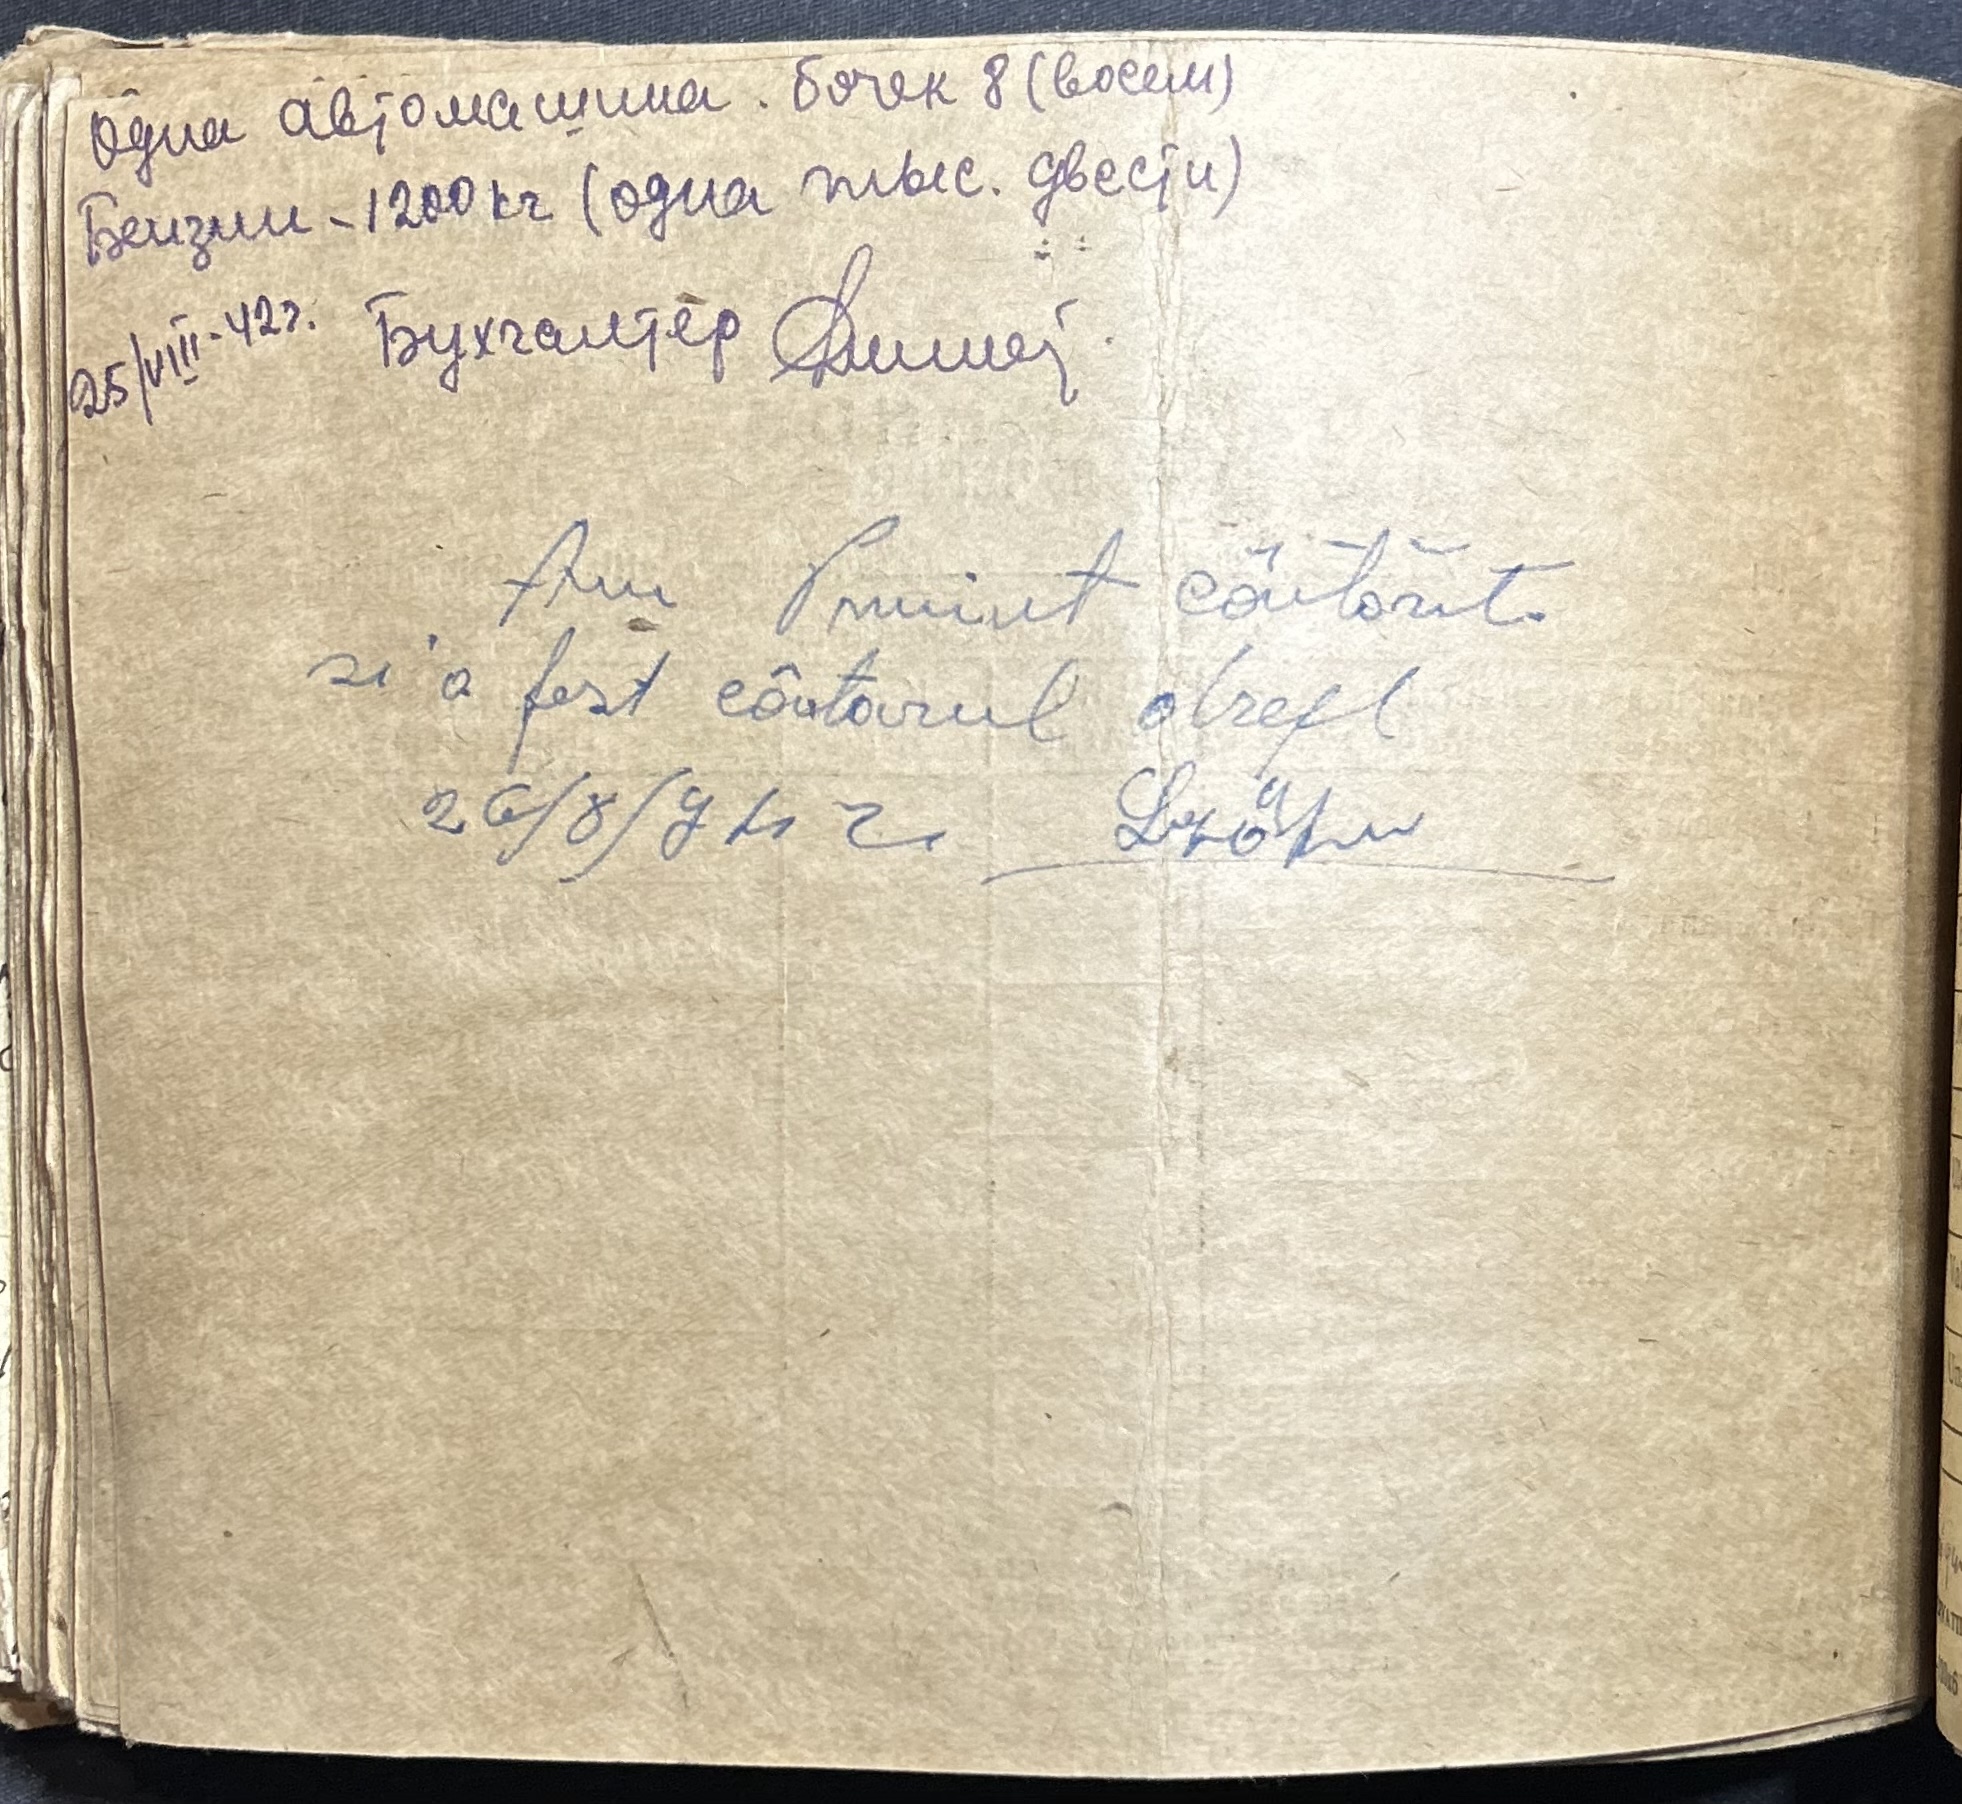 Одна автомашина. бочек 8 (восем)
Бензин - 1200 кг (одна тыс. двести)
25/VIII-42г. Бухгалтер
Am Primit cântărit.
si a fost cântarul drept
26/8/942